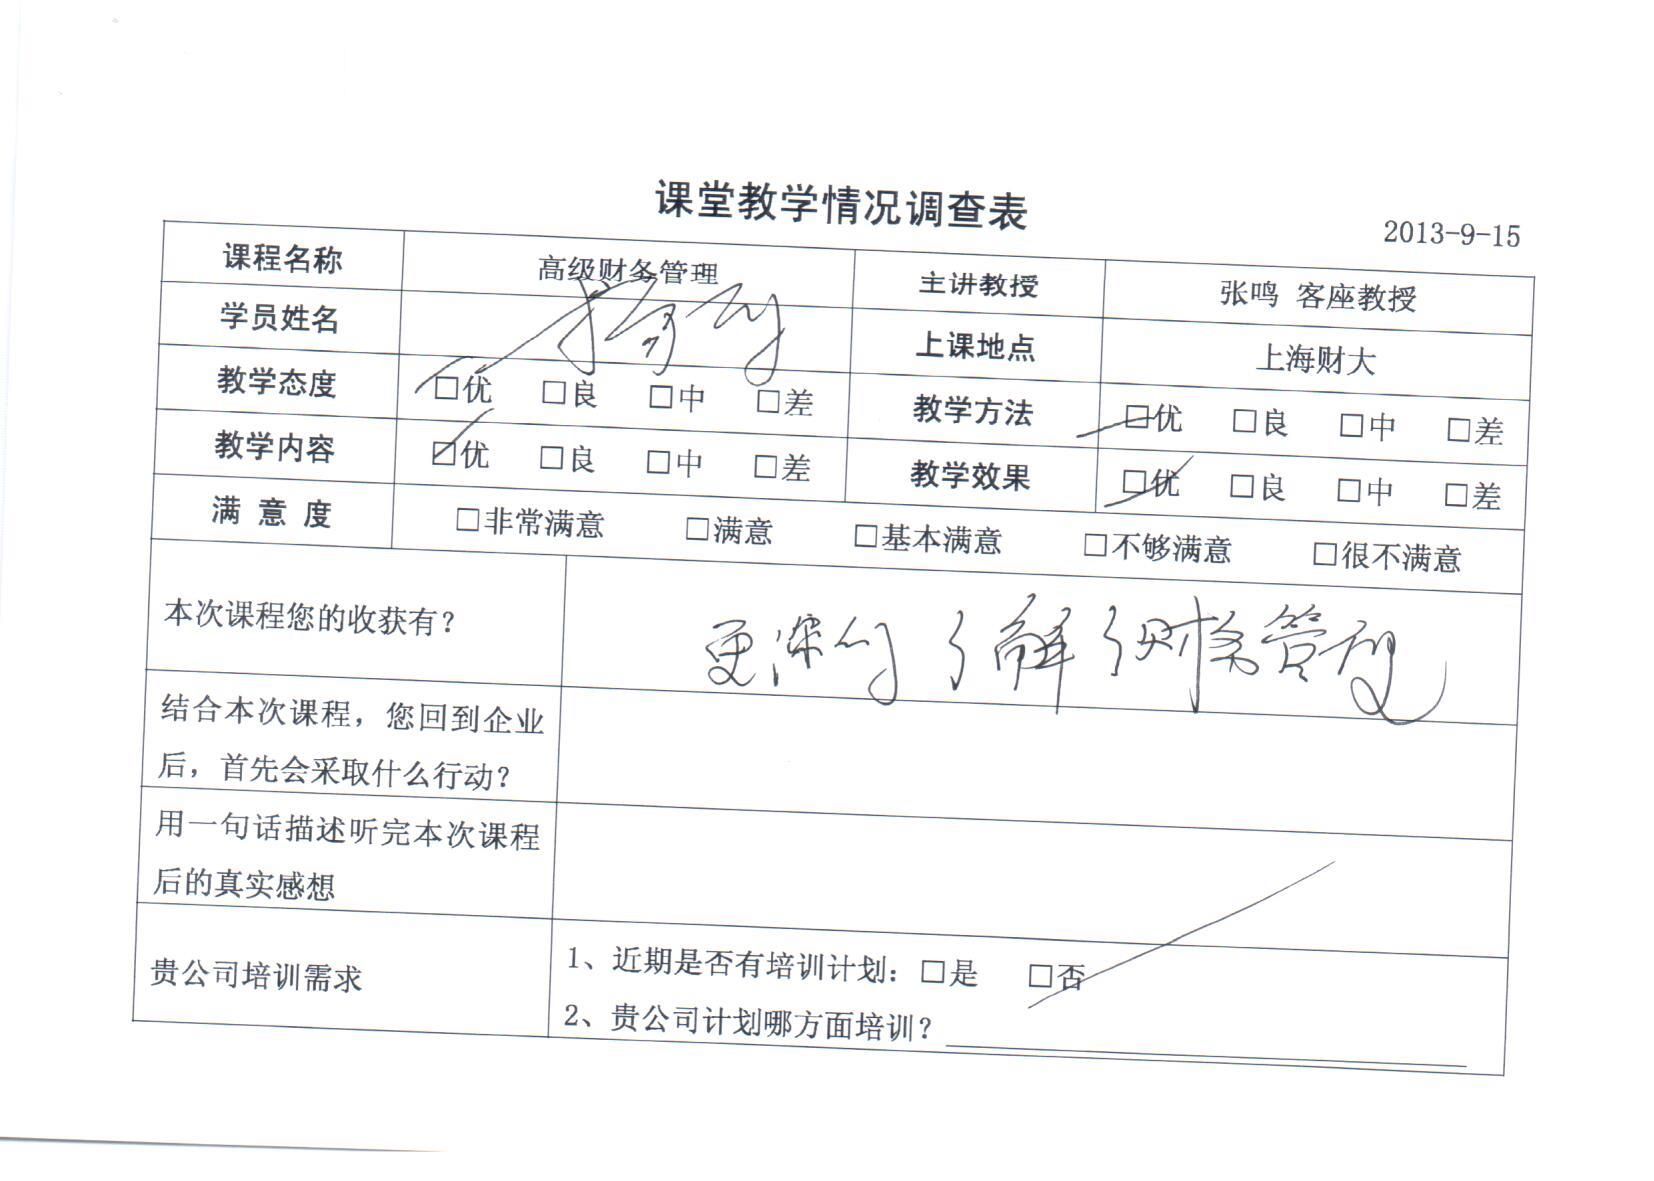 课堂教学情况调查表
2013-9-15
课程名称 高级财务管理 主讲教授 张鸣 客座教授
学员姓名 上课地点 上海财大
教学态度 □优 □良 □中 □差 教学方法 □优 □良 □中 □差
教学内容 ☑优 □良 □中 □差 教学效果 □优 □良 □中 □差
满 意 度 □非常满意 □满意 □基本满意 □不够满意 □很不满意
本次课程您的收获有? 更深的了解了财务管理
结合本次课程, 您回到企业
后, 首先会采取什么行动?
用一句话描述听完本次课程
后的真实感想
贵公司培训需求
1、近期是否有培训计划: □是 □否
2、贵公司计划哪方面培训?